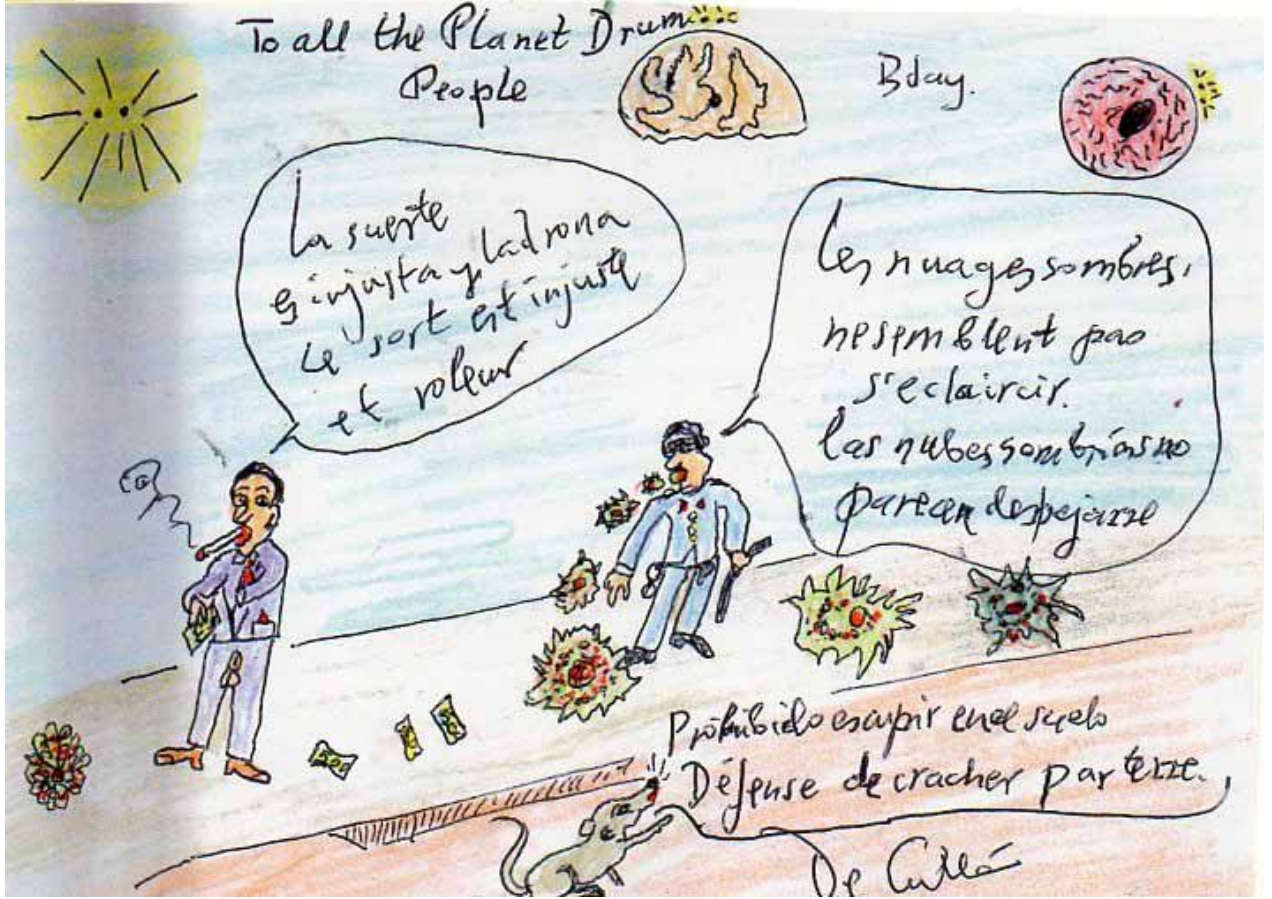 To all the Planet Drum
People
Bday.
La suerte
es injusta y ladrona
Le sort est injuste
et voleur
Les nuages sombres,
ne semblent pas
s'eclaircir.
las nubes sombrías no
parecen despejarse
Prohibido escupir en el suelo
Défense de cracher par terre.
De Cullá